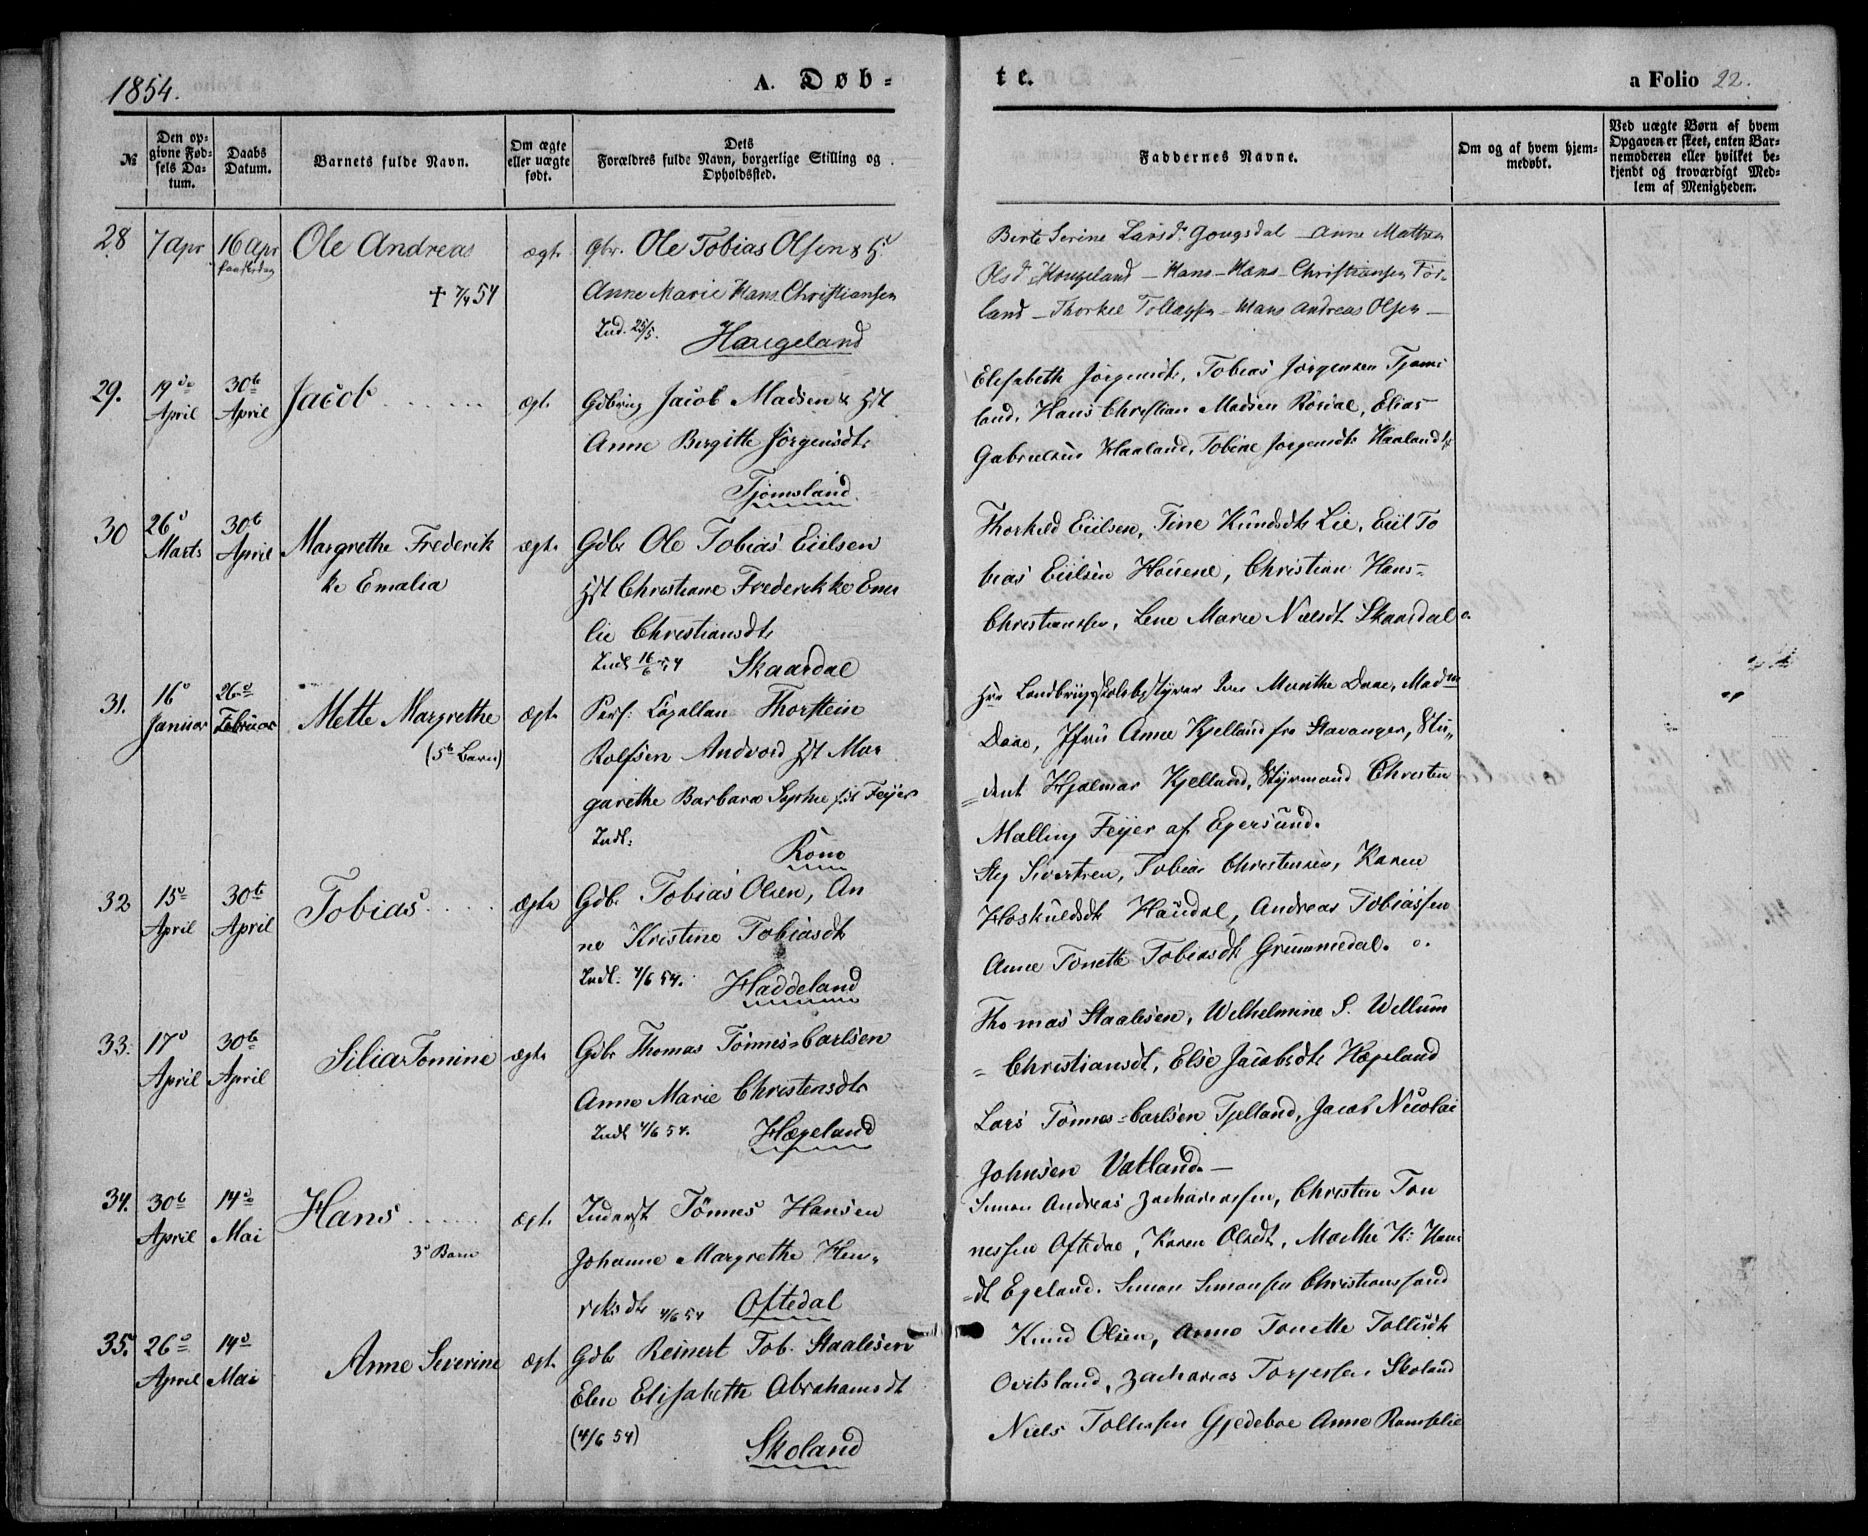 1854.
A. Døb-
te.
a Folio 22.
№
Den opgivne Fødsels Datum.
Daabs Datum.
Barnets fulde Navn.
Om ægte eller uægte født.
Dets Forældres fulde Navn, borgerlige Stilling og Opholdssted.
Faddernes Navne.
Om og af hvem hjemmedøbt.
Ved uægte Børn af hvem Opgaven er skeet, enten Barnemoderen eller hvilket bekjendt og troværdigt Medlem af Menigheden.
28 7 Apr 16 Apr Ole Andreas ægt. gbr. Ole Tobias Olsen & H.
Anne Marie Hans Christiansen
Ind. 25/5. Haugeland
Birte Serine Larsd. - Anne
Olsd Haugeland - Hans - Hans - Christiansen Før-
land - Thorkel - Hans Andreas Olsen -
29. 19de April 30te April Jacob ægt. Gdbrug Jacob Madsen & Hst
Anne Birgitte Jørgensdt.
Tjomsland.
Elisabeth Jørgensdt, Tobias Jørgensen Tjoms
land, Hans Christian Madsen Rosdal, Elias
Gabrielsen Haaland, Tobine Jørgensdt Haaland
30 26d Marts 30te April Margrethe Frederik
ke Emalia ægt. Gdbr Ole Tobias Eiilsen
Hst Christiane Frederikke Eme
lie Christiansdt
Indl 16/6 54 Skaardal
Thorkild Eiilsen, Tine Knudsdt Lie, Eiil To
bias Eiilsen Houene, Christian Hans-
Christianssen, Lene Marie Nielsdt Skaardal
31. 16d Januar 26de Februar Mette Margrethe
(5te Barn) ægt. Pers: Capellan Thorstein
Rolfsen Andvord Hst Mar
garethe Barbara Sophie født Feyer
Indl: Rono
Hr Landbrugsskolebestyrer Munthe Daae, Madm
Daae, Jfru Anna Kjelland fra Stavanger, Stu
dent Hjalmar Kjelland, Styrmand Christen
Malling Feyer af Egersund.
32 15d April 30te April Tobias ægte Gdbr Tobias Olsen, An
ne Kristine Tobiasdt
Indl: 4/6 54. Haddeland
Sivertsen, Tobias Christensen, Karen
Hoskuldsdt Haudal, Andreas Tobiassen
Anne Tonette Tobiasdt Grummedal.
33. 17d April 30te April Silia Tomine ægte Gdbr Thomas Tønnes-Carlsen
Anne Marie Christensdt
Indl 4/6 54. Hægeland
Thomas Staalesen, Wilhelmine S. Wellum
Christiansdt, Else Jacobsdt Hægeland
Lars Tønnes-Carlsen Tjelland, Jacob Nicolai
Johnsen Vatland.-
34. 30te April 14de Mai Hans
3d Barn ægt. Inderst Tønnes Hansen
Johanne Margrethe Hen-
riksdt 4/6 54 Oftedal
Simon Andreas Zachariassen, Christen Tøn
nessen Oftedal, Karen Olsdt, Marthe K: Han
dt Egeland. Simon Simonsen Christianssand
35. 26d April 14d Mai Anne Severine ægt. Gdbr Reinert Tob. Staalesen
Elen Elisabeth Abrahamsdt
(4/6 54) Skoland
Knud Olsen, Anne Tonette Tollisdt
Ovitsland, Zacharias Torjersen Skoland
Niels Tollefsen Gjedeboe Anne Ramselie